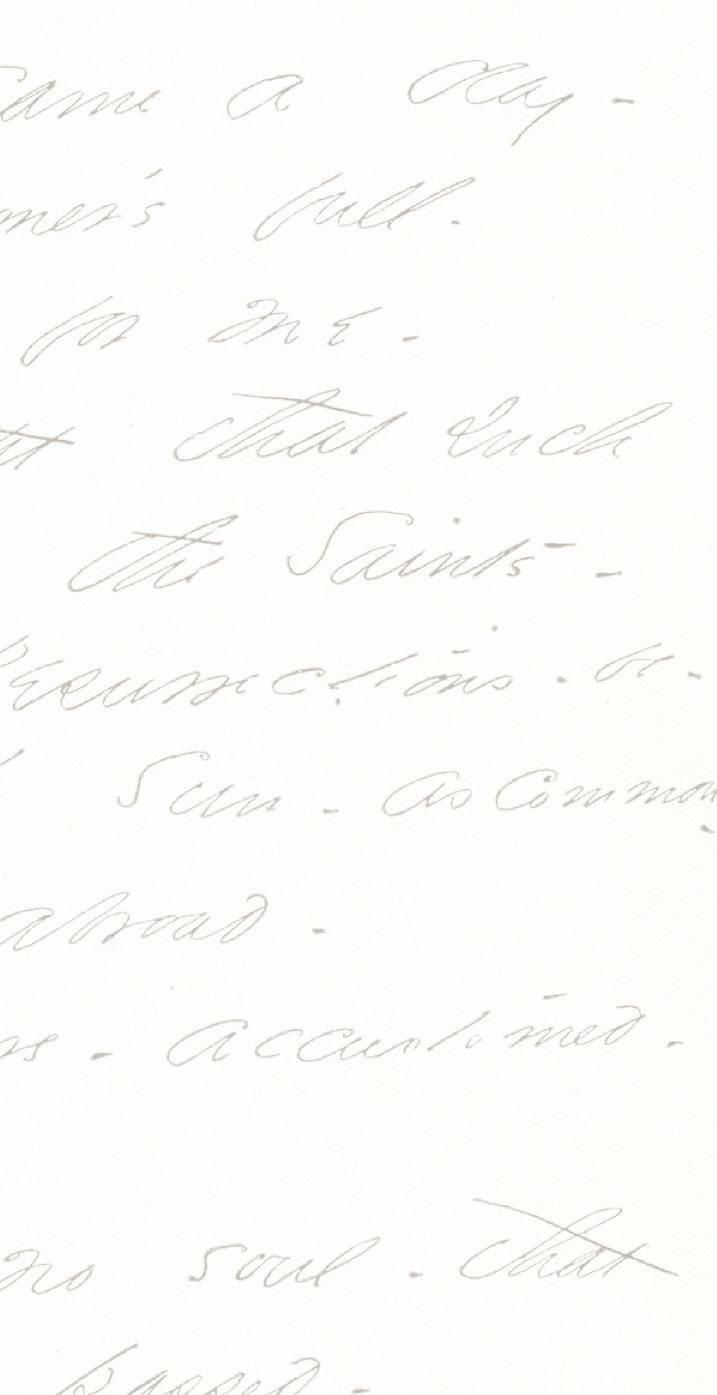 Came a Day -
mer's full.
for me -
that such
the Saints -
Resurrections - be -
Sun - as common
abroad -
rs - accustomed -
no soul - that
passed -